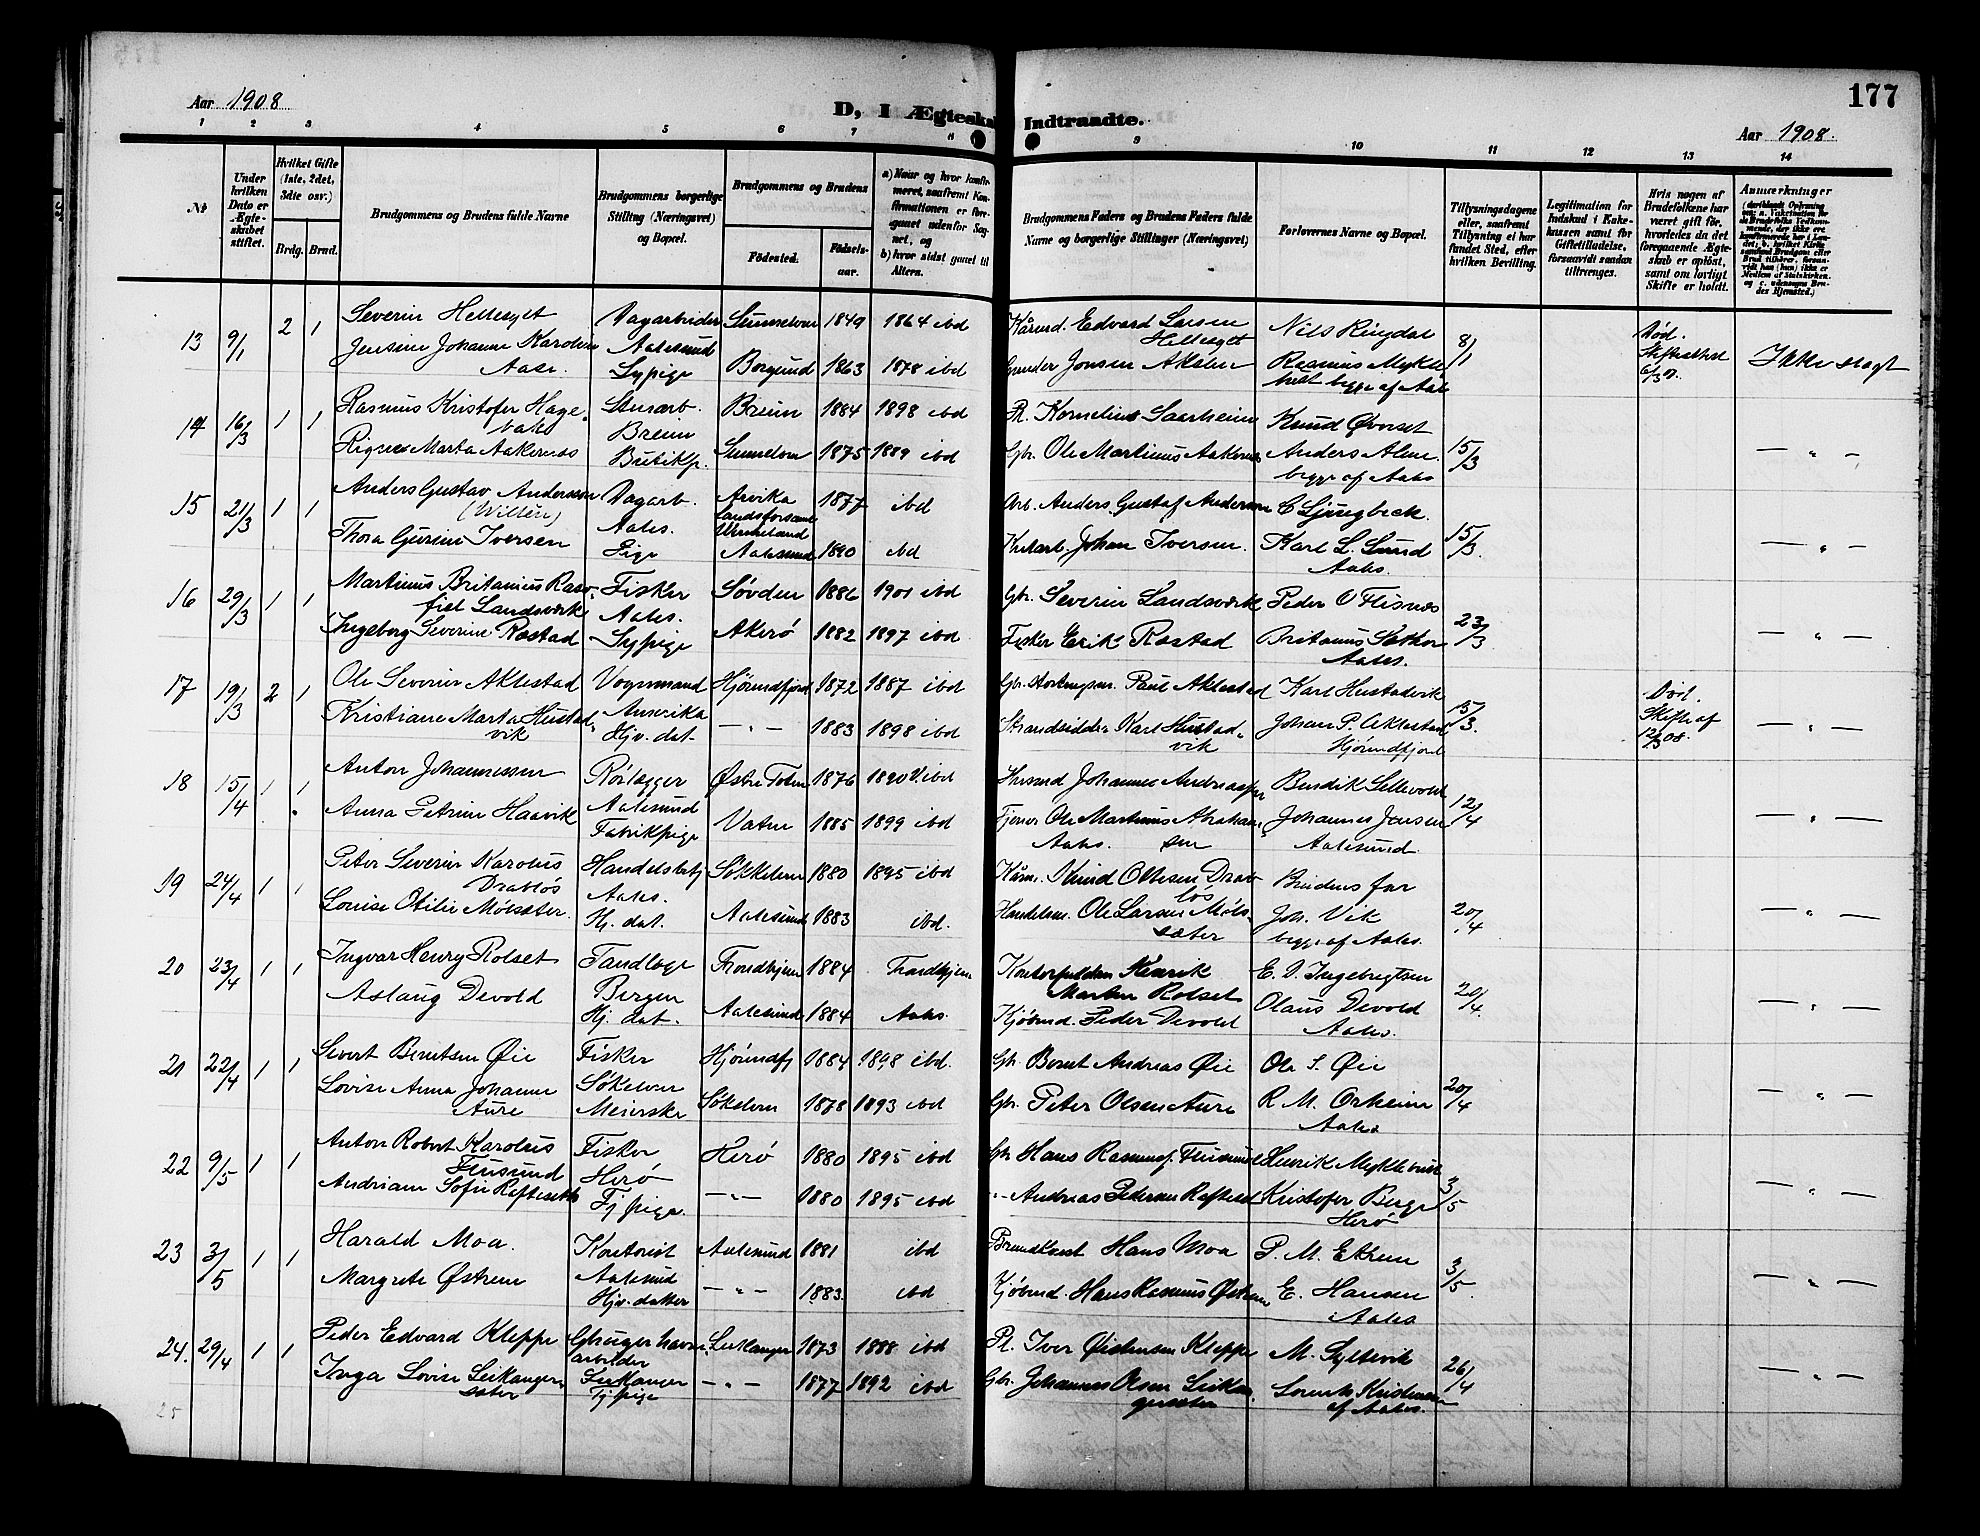 177
Aar 1908
D, I Ægteska
Indtraadte.
Aar 1908.
1 2 3 4 5 6 7 8 9 10 11 12 13 14
Nr
Under hvilken Dato er Ægteskabet stiftet.
Hvilket Gifte (1ste, 2det, 3die osv.)
Brdg. Brud.
Brudgommens og Brudens fulde Navne
Brudgommens borgerlige Stilling (Næringsvei) og Bopæl.
Brudgommens og Brudens
Fødested.
Fødselsaar.
a) Naar og hvor konfirmeret, saafremt Konfirmationen er foregaaet udenfor Sognet, og
b) hvor sidst gaaet til Alters.
Brudgommens Faders og Brudens Faders fulde Navne og borgerlige Stillinger (Næringsvei)
Forlovernes Navne og Bopæl.
Tillysningsdagene eller, saafremt Tillysning ei har fundet Sted, efter hvilken Bevilling.
Legitimation for Indskud i Enkekassen samt for Giftetilladelse, forsaavidt saadan tiltrænges.
Hvis nogen af Brudefolkene har været gift før, hvorledes da det foregaaende Ægteskab er opløst, samt om lovligt Skifte er holdt.
Anmærkninger
13 9/1 2 1 Severin Hellesylt Dagarbeider Sunnelven 1849 1864 ibd Edvard Larsen Hellesylt Nils Ringdal 8/1 Død.
Jensine Johanne Karoline Aase. Aalesund Sypige Borgund 1863 1878 ibd Gunder Jonsen Rasmus Myklebust begge af Aal Ikke slægt
14 16/3 1 1 Rasmus Kristofer Hagebakk Breim Breim 1884 1898 ibd Kornelius Saarheim Knud Øverset
Marta Aakernes Butikkp. Sunnelven 1875 1889 ibd Gbr. Ole Martinus Aakernes Anders Alme begge af Aales 15/3 — " —
15 21/3 1 1 Anders Gustav Anderson (Willén) Dagarb. Aales. Arvika Landsforsaml. Wermeland 1877 ibd Arb. Anders Gustaf Anderson C Ljungbeck.
Thora Gurine Iversen Pige Aalesund 1890 ibd Johan Iversen. Karl L. Lund Aales. 15/3. — " —
16 29/3 1 1 Martinus Britanius Landsværk Fisker Aales. Søvden 1886 1901 ibd Gbr. Severin Landsværk Peder O Flisnes
Ingeborg Severine Rostad Sypige Akerø 1882 1897 ibd Fisker Erik Rostad Britanus Sæther Aales. 23/3 — " —
17 19/3 2 1 Ole Severin Aklestad Vognmand Amerika Hjørundfjord 1872 1887 ibd Paul Aklestad Karl Hustadvik 15/3. Død. Skifte af 12/3 08.
Kristiane Marta Hustadvik Hjv. dat — " — 1883 1898 ibd Strandsidder Karl Hustadvik Johan P. Aklestad Hjørundfjord — " —
18 15/4 1 1 Anton Johannessen Rørlægger Aalesund Østre Toten 1876 1890 V. ibd Husmd Johannes Andreassen Bendik Sellevold
Anna Petrine Haavik Fabrikpige Vatne 1885 1899 ibd Ole Martinus Abrahamsen Aales. Johannes Jensen Aalesund. 12/4 — " —
19 24/4 1 1 Peter Severin Karolus Drabløs Handelsbetj Aales. Søkkelven 1880 1895 ibd Knud Ottesen Drabløs Brudens far
Louise Otilie Molsæter. Hj. dat. Aalesund 1883 ibd. Handelsm. Ole Larsen Molsæter Joh. Vik begge af Aales. 20/4 — " —
20 23/4 1 1 Ingvar Henry Rolset Tandlæge Bergen Trondhjem 1884 Trondhjem Henrik Martin Rolset E. Ingebrigtsen
Aslaug Devold Hj. dat. Aalesund 1884 Aales. Kjøbmd. Peder Devold Olaus Devold Aales. 20/4. — " —
21 22/4 1 1 Sivert Berntsen Øie Fisker Søkelven Hjørundfj 1884 1898 ibd. Gbr. Bernt Andreas Øie Ole S. Øie
Lovise Anna Johanne Aure Meierske Søkelven 1878 1893 ibd Gbr. Peter Olsen Aure R M. Orheim Aales 20/4 — " —
22 9/5 1 1 Anton Robert Karolus Flusund Fisker Herø Herø 1880 1895 ibd Gbr Hans Rasmus. Flusund Henrik Myklebust
Andriane Sofie Refteseth Tj pige. — " — 1880 1895 ibd " Andreas Pedersen Kristofer Berge Herø 3/5 — " —
23 3/5 1 1 Harald Moa. Kontorist Aalesund Aalesund 1881 ibd Hans Moa P. M. Ekrem
Margrete Østrem Hjv. datter — " — 1883. ibd Kjøbmd. Hans Rasmus Østrem E. Hansen Aales 3/5. — " —
24. 29/4 1 1 Peder Edvard Kleppe arbeider Leikanger Leikanger 1873 1888 ibd Pl. Iver Øistensen Kleppe M. Syltevik
Inga Lovise Leikangersæter Tj pige — " — 1877 1892 ibd Gbr. Johannes Olsen Leikangersæter Lorents Kristensen af Aales. 26/4 — " —
25